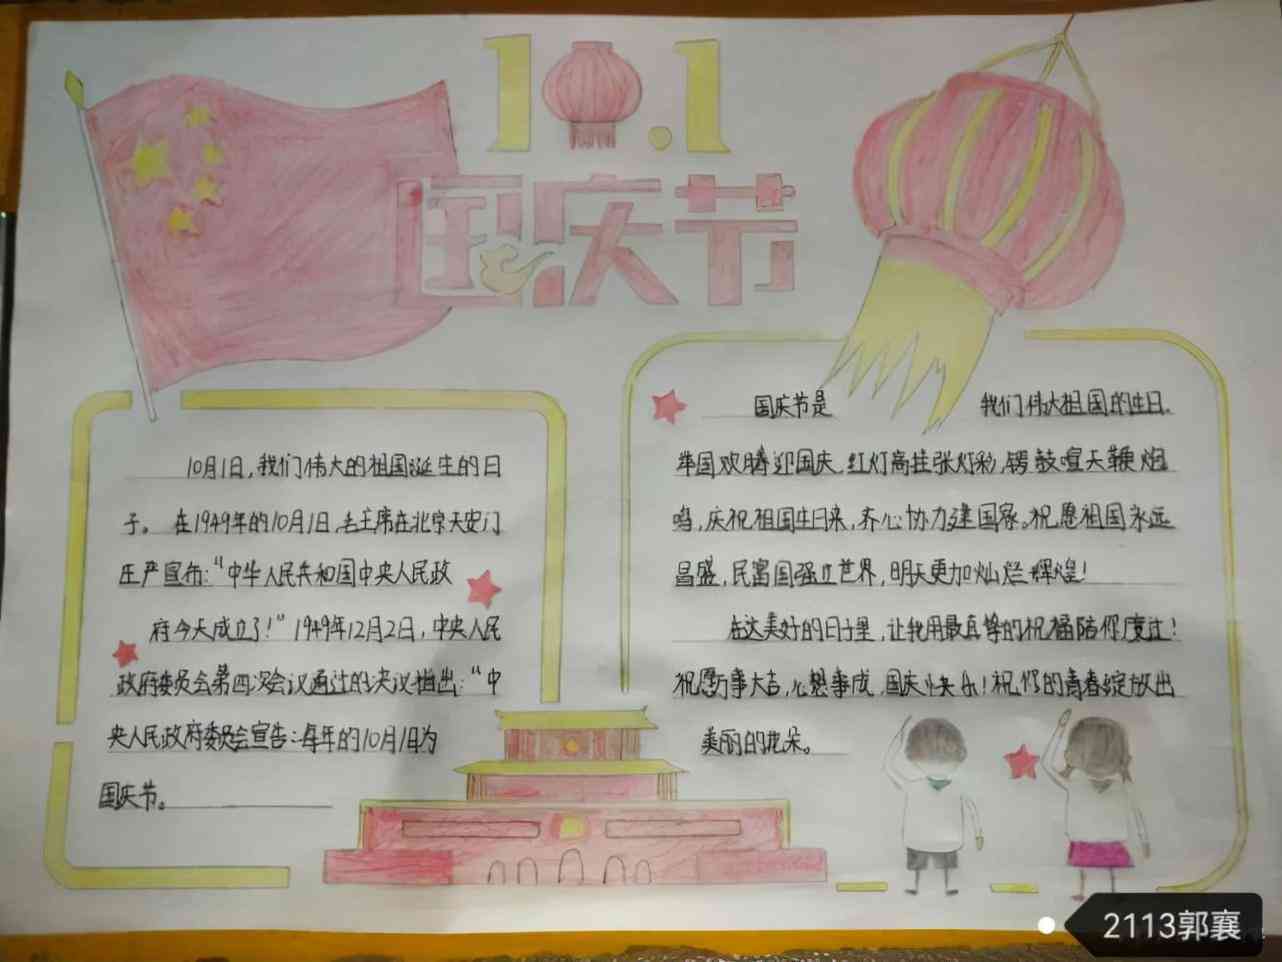 10.1
国庆节
10月1日,我们伟大的祖国诞生的日
子。在1949年的10月1日,毛主席在北京天安门
庄严宣布:“中华人民共和国中央人民政
府今天成立了!”1949年12月2日,中央人民
政府委员会第四次会议通过的决议指出:“中
央人民政府委员会宣告:每年的10月1日为
国庆节。
国庆节是 我们伟大祖国的生日.
举国欢腾迎国庆,红灯高挂张灯彩,锣鼓喧天鞭炮
鸣,庆祝祖国生日来,齐心协力建国家。祝愿祖国永远
昌盛,民富国强立世界,明天更加灿烂辉煌!
在这美好的日子里,让我用最真挚的祝福陪你度过!
祝愿万事大吉,心想事成,国庆快乐!祝你的青春绽放出
美丽的花朵。
2113郭襄